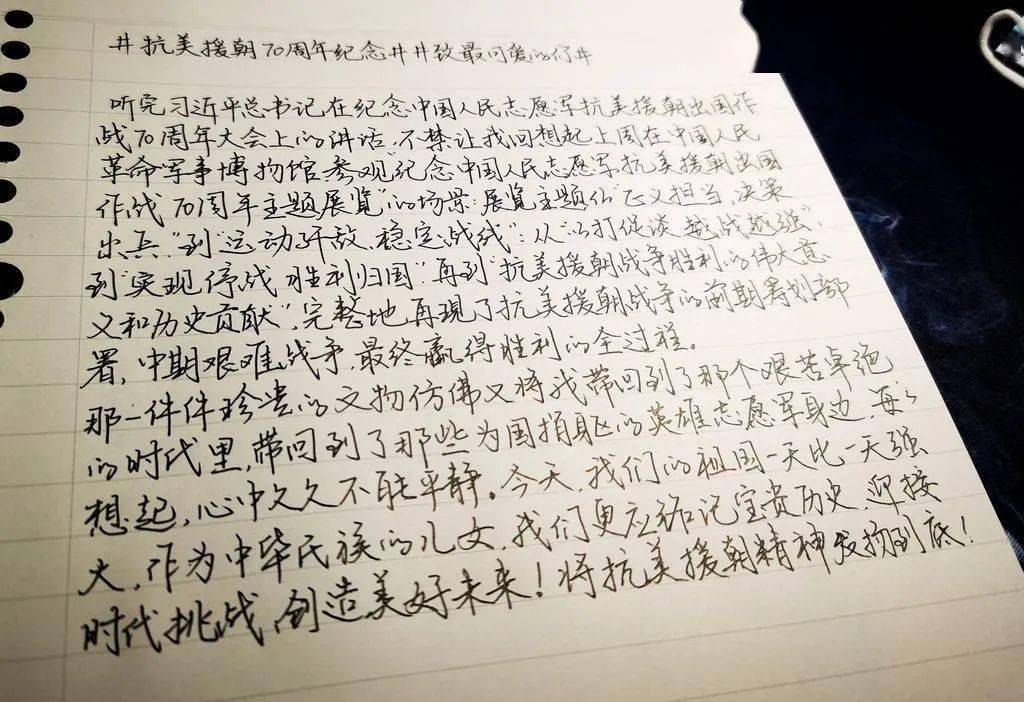 #抗美援朝70周年纪念##致最可爱的你#
听完习近平总书记在纪念中国人民志愿军抗美援朝出国作
战70周年大会上的讲话，不禁让我回想起上周在“中国人民
革命军事博物馆参观纪念中国人民志愿军抗美援朝出国
作战70周年主题展览”的场景：展览主题从“正义担当、决策
出兵”到“运动歼敌、稳定战线”；从“以打促谈、越战越强”，
到“实现停战、胜利归国”再到“抗美援朝战争胜利的伟大意
义和历史贡献”，完整地再现了抗美援朝战争的前期筹划部
署，中期艰难战争，最终赢得胜利的全过程。
那一件件珍贵的文物仿佛又将我带回到了那个艰苦卓绝
的时代里，带回到了那些为国捐躯的英雄志愿军身边，每每
想起，心中久久不能平静。今天，我们的祖国一天比一天强
大，作为中华民族的儿女，我们更应铭记宝贵历史，迎接
时代挑战，创造美好未来！将抗美援朝精神发扬到底！